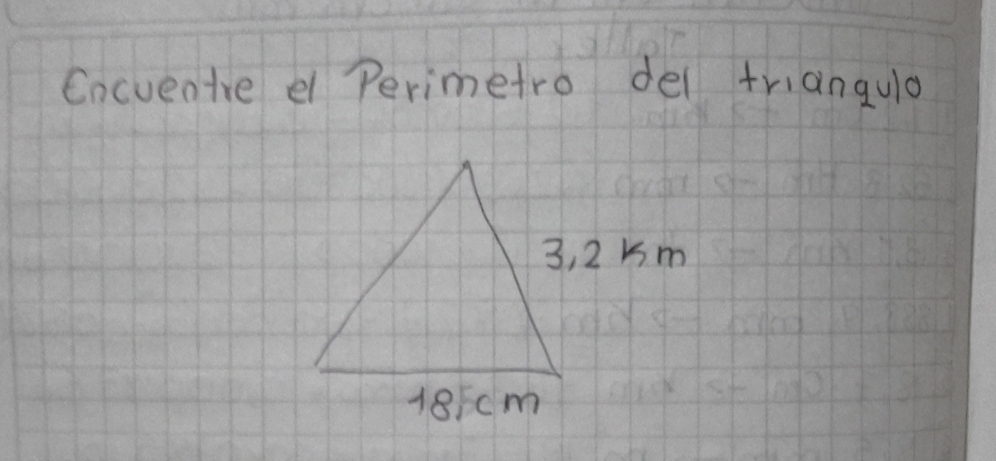 Encuentre el Perimetro del triangulo
3,2 Km
18,cm